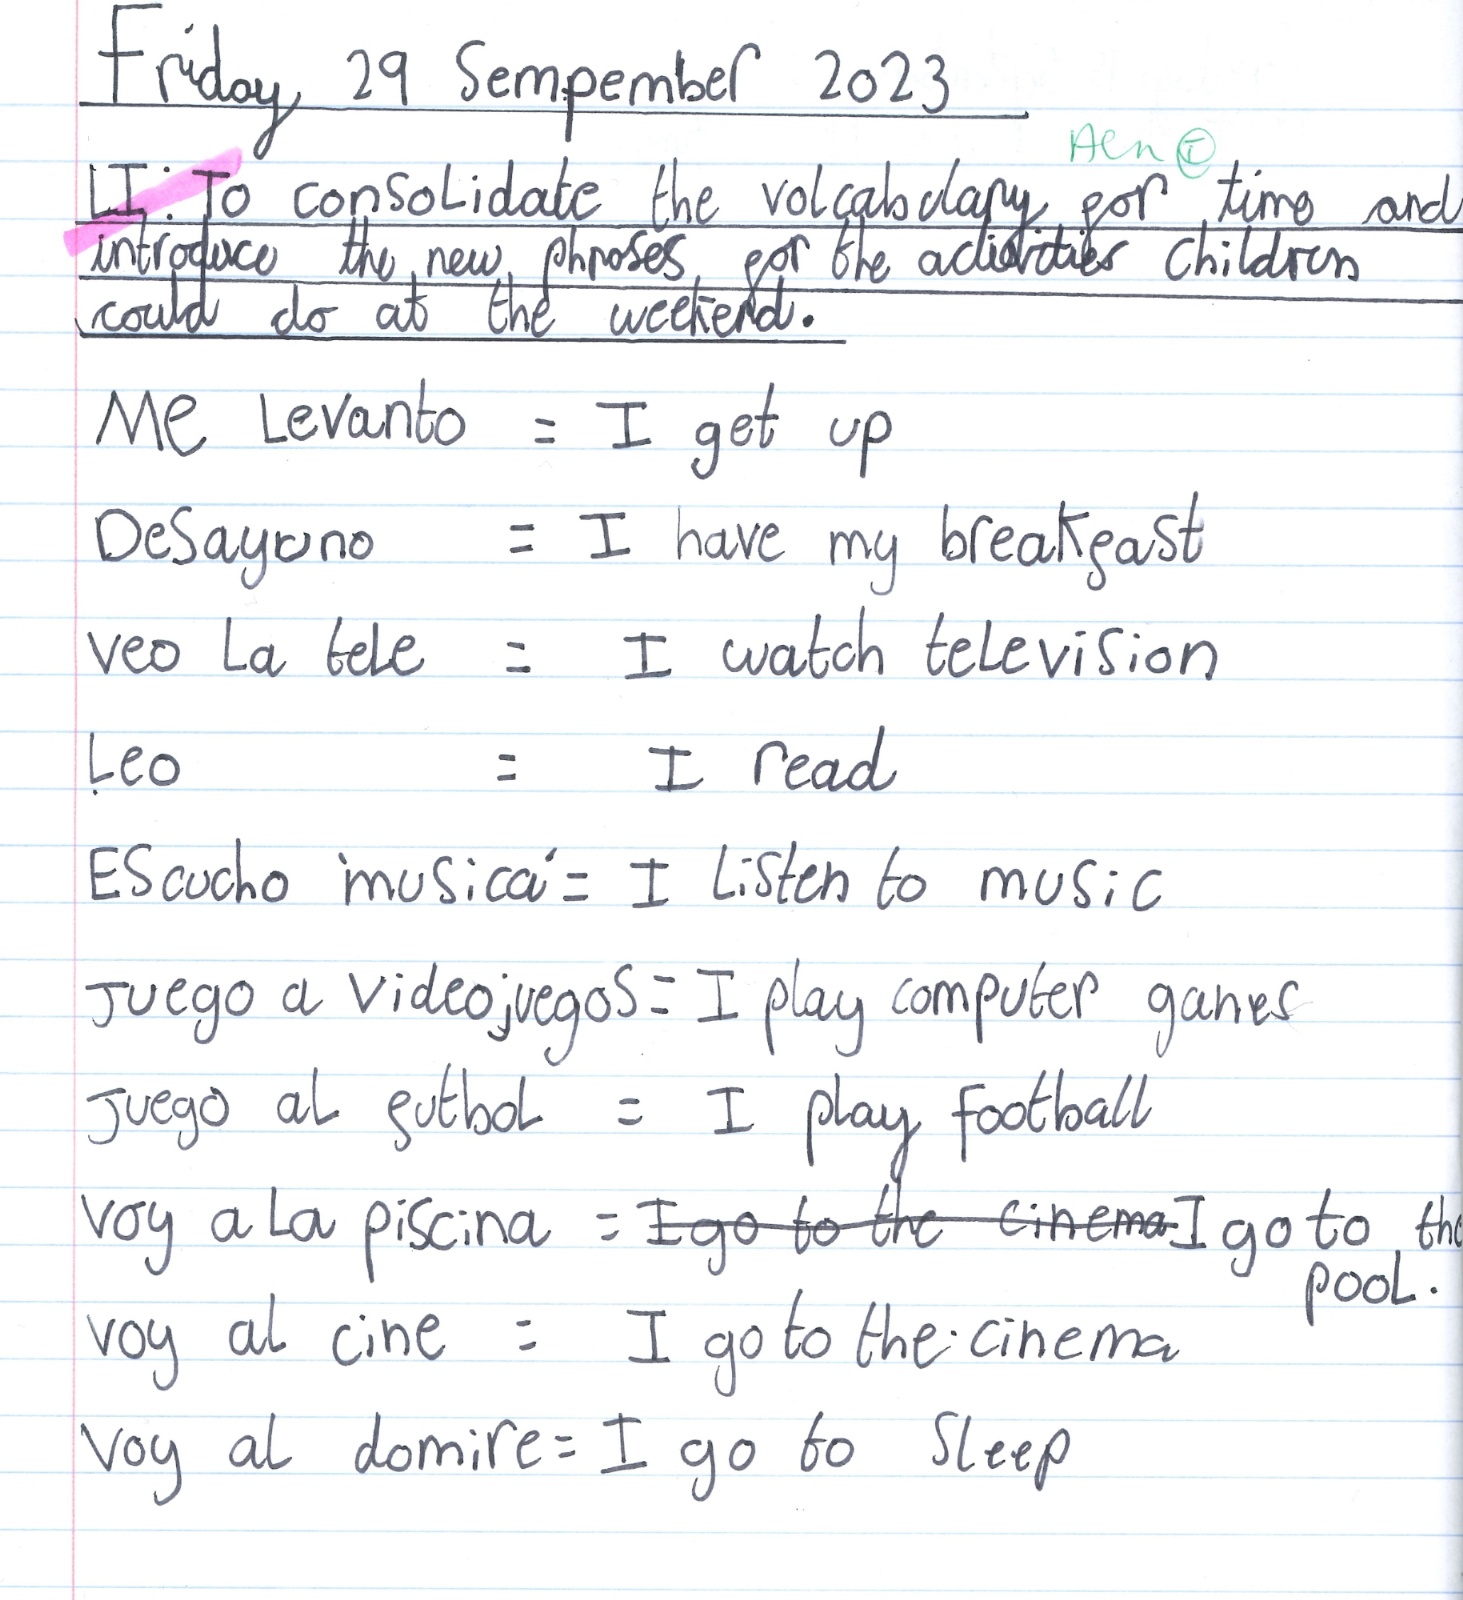 Friday 29 Sempember 2023
LI: To consolidate the volcabulary for time and
introduce the new phrases for the activities children
could do at the weekend.
Me Levanto = I get up
Desayuno = I have my breakfast
veo La tele = I watch television
Leo = I read
Escucho musica = I Listen to music
Juego a videojuegos = I play computer games
Juego al futbol = I play football
voy a La piscina = I go to the cinema I go to the
pool.
voy al cine = I go to the cinema
voy al domire = I go to sleep